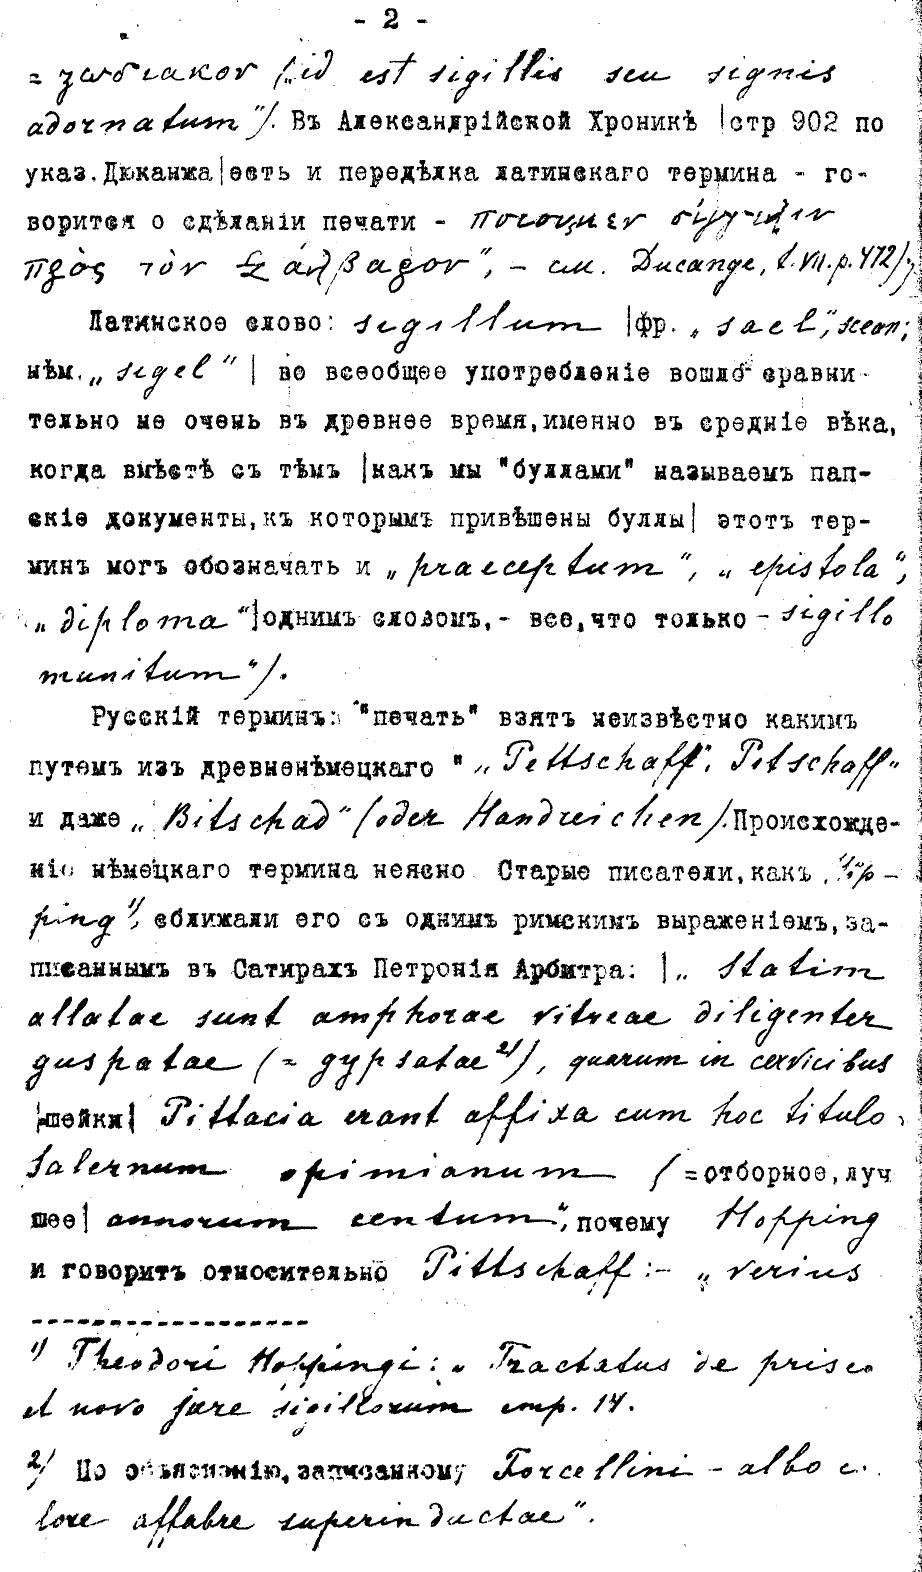 - 2 -
= ζωδιακον (id est sigillis seu signis
adornatum"/. Въ Александрійской Хроникѣ |стр 902 по
указ.Дюканжа|есть и передѣлка латинскаго термина - го-
ворится о сдѣланіи печати -
πρὸς τὸν", - см. Ducange, t.VII.p.472/
Латинское слово: sigillum |фр. „sael",
нѣм. „sigel" | во всеобщее употребленіе вошло сравни-
тельно не очень въ древнее время,именно въ средніе вѣка,
когда вмѣстѣ съ тѣмъ |какъ мы "буллами" называемъ пап-
скіе документы,къ которымъ привѣшены буллы| этотъ тер-
минъ могъ обозначать и „praeceptum", „epistola",
„diploma"|однимъ словомъ,- все,что только - sigillo
munitum"/.
Русскій терминъ: "печать" взятъ неизвѣстно какимъ
путемъ изъ древненѣмецкаго " „Pettschaff", Petschaff"
и даже „Bitschad" (oder Handreichen/.Происхожде-
ніе нѣмецкаго термина неясно Старые писатели,какъ „Höp-
ping"¹⁾, сближали его съ однимъ римскимъ выраженіемъ,за-
писаннымъ въ Сатирахъ Петронія Арбитра: |„ Statim
allatae sunt amphorae vitreae diligenter
guspatae (= gypsatae²⁾), quarum in cervicibus
|шейки| Pittacia erant affixa cum hoc titulo
Falernum opimianum (=отборное,луч
шее| annorum centum", почему Hopping
и говоритъ относительно Pittschaff:- „verius
¹⁾ Theodori Hoppingi: „Tractatus de prisco
et novo jure sigillorum cmp. 14.
²⁾ По объясненію,записанному Forcellini - albo c.
lore affabre superinductae".